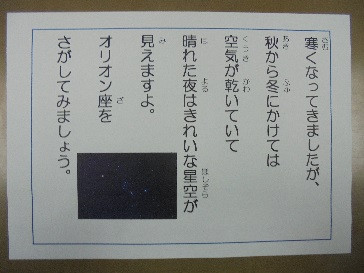 寒くなってきましたが、
秋から冬にかけては
空気が乾いていて
晴れた夜はきれいな星空が
見えますよ。
オリオン座を
さがしてみましょう。